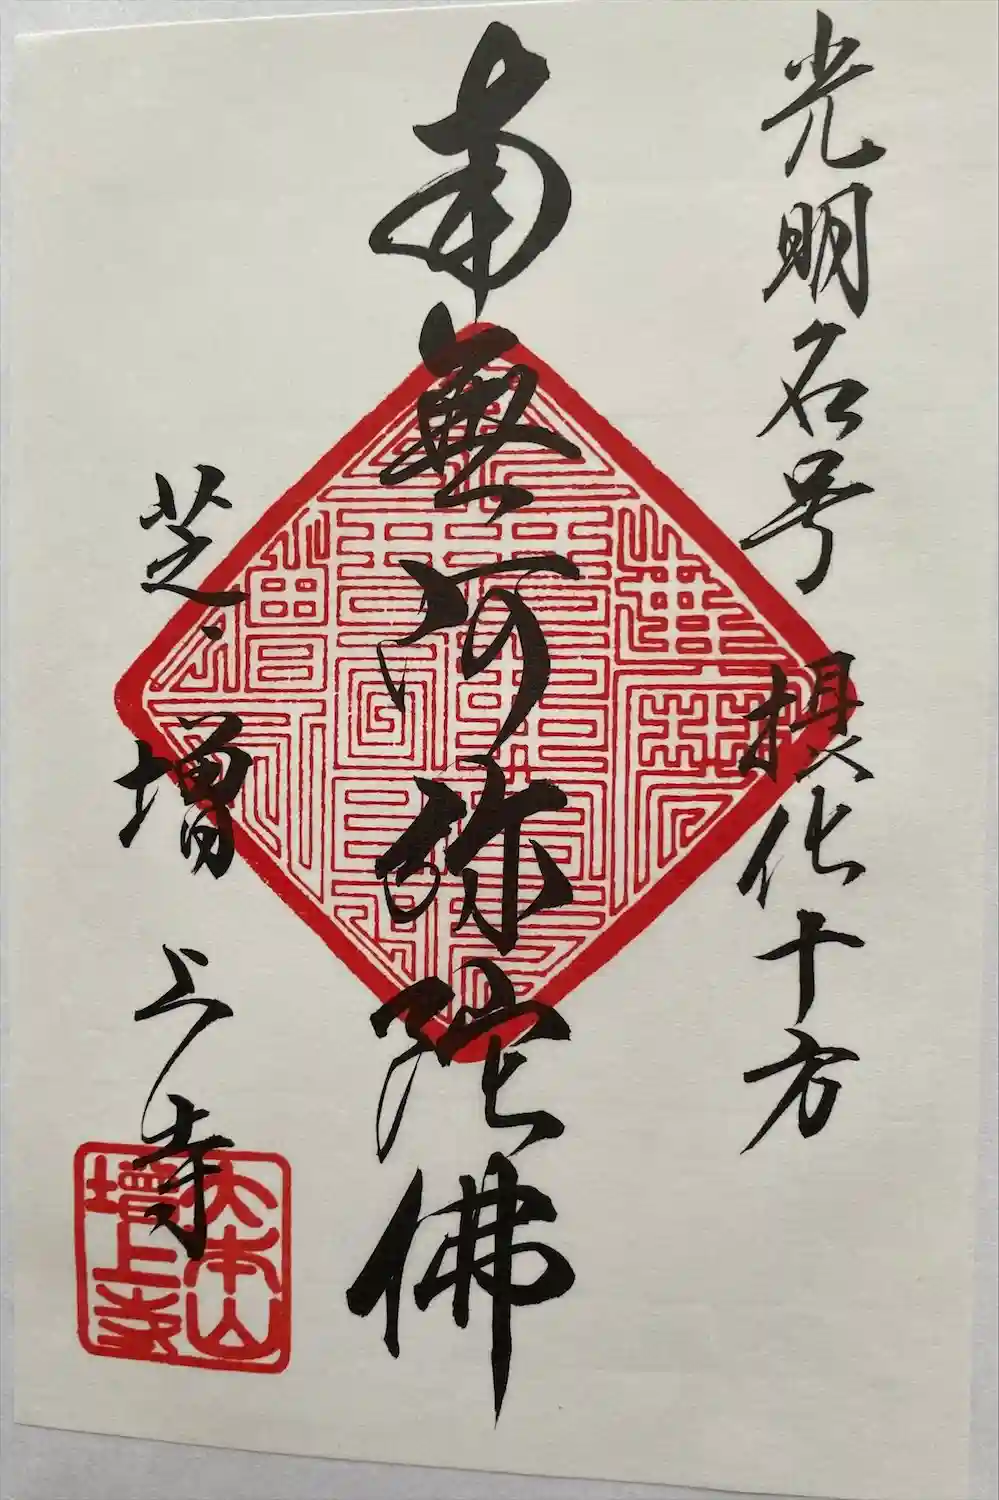 光明名号
摂化十方
南無阿弥陀佛
芝 増上寺
大本山
増上寺